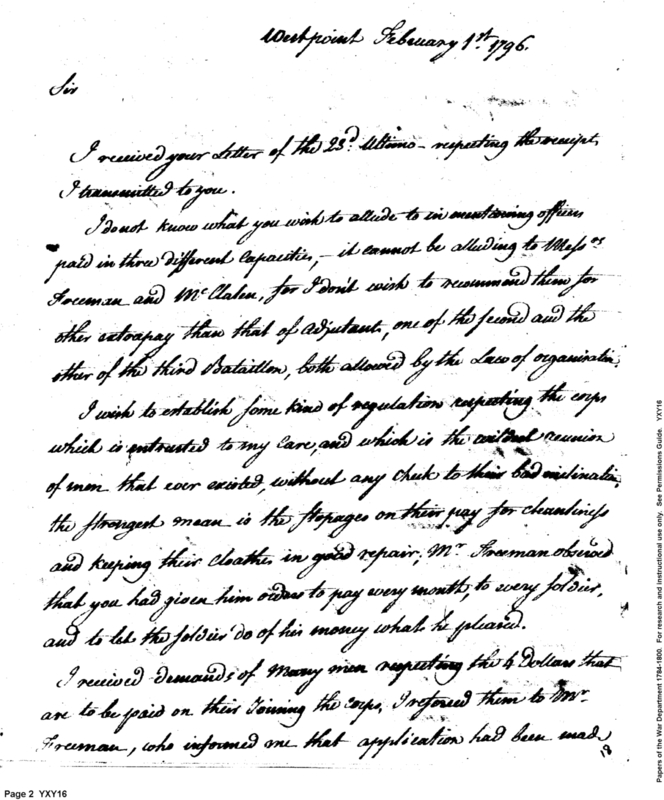 Westpoint February 1st. 1796.
Sir
I received your Letter of the 23d. Ultimo - respecting the receipt,
I transmitted to you.
I do not know what you wish to allude to in mentioning officers
paid in three different Capacities, - it cannot be alluding to Messrs
Freeman and McClalen, for I don't wish to recommend them for
other extrapay than that of Adjutant, one of the second and the
other of the third Bataillon, both allowed by the Law of organization.
I wish to establish some kind of regulation respecting the corps
which is entrusted to my Care, and which is the reunion
of men that ever existed, without any check to their bad inclination,
the strongest mean is the stopages on their pay for cleanliness
and keeping their cloathes in good repair; Mr. Freeman observed
that you had given him orders to pay every month, to every soldier,
and to let the soldier do of his money what he pleased.
I received demands of many men respecting the 4 Dollars that
are to be paid on their Joining the Corps, I referred them to Mr.
Freeman, who informed me that application had been made
18
Page 2 YXY16
Papers of the War Department 1784-1800. For research and instructional use only. See Permissions Guide. YXY16